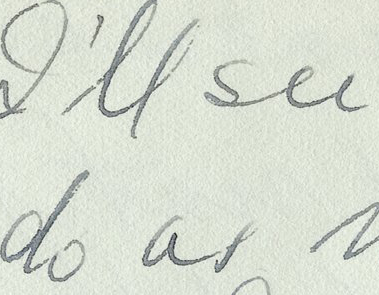 I'll see
do as